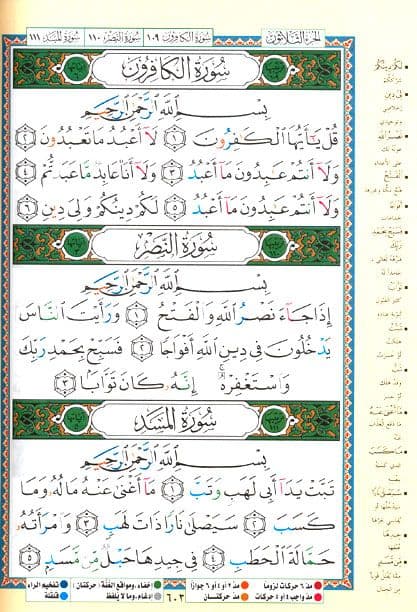 الجزء الثلاثون
سورة الكافرون ١٠٩
سورة النصر ١١٠
سورة المسد ١١١
سورة الكافرون
بسم الله الرحمن الرحيم
قُلْ يَٰٓأَيُّهَا ٱلْكَٰفِرُونَ ١ لَآ أَعْبُدُ مَا تَعْبُدُونَ ٢
وَلَآ أَنتُمْ عَٰبِدُونَ مَآ أَعْبُدُ ٣ وَلَآ أَنَا۠ عَابِدٌ مَّا عَبَدتُّمْ ٤
وَلَآ أَنتُمْ عَٰبِدُونَ مَآ أَعْبُدُ ٥ لَكُمْ دِينُكُمْ وَلِىَ دِينِ ٦
سورة النصر
بسم الله الرحمن الرحيم
إِذَا جَآءَ نَصْرُ ٱللَّهِ وَٱلْفَتْحُ ١ وَرَأَيْتَ ٱلنَّاسَ
يَدْخُلُونَ فِى دِينِ ٱللَّهِ أَفْوَاجًا ٢ فَسَبِّحْ بِحَمْدِ رَبِّكَ
وَٱسْتَغْفِرْهُ ۚ إِنَّهُۥ كَانَ تَوَّابًۢا ٣
سورة المسد
بسم الله الرحمن الرحيم
تَبَّتْ يَدَآ أَبِى لَهَبٍ وَتَبَّ ١ مَآ أَغْنَىٰ عَنْهُ مَالُهُۥ وَمَا
كَسَبَ ٢ سَيَصْلَىٰ نَارًا ذَاتَ لَهَبٍ ٣ وَٱمْرَأَتُهُۥ
حَمَّالَةَ ٱلْحَطَبِ ٤ فِى جِيدِهَا حَبْلٌ مِّن مَّسَدٍۭ ٥
مدّ ٦ حركات لزوماً مدّ ٢ أو ٤ أو ٦ جوازاً إخفاء، ومواقع الغنّة (حركتان) تفخيم الراء
مدّ واجب ٤ أو ٥ حركات مدّ حركتان إدغام، وما لا يُلفظ قلقلة
٦٠٣
لكم دينكم
ولي دين